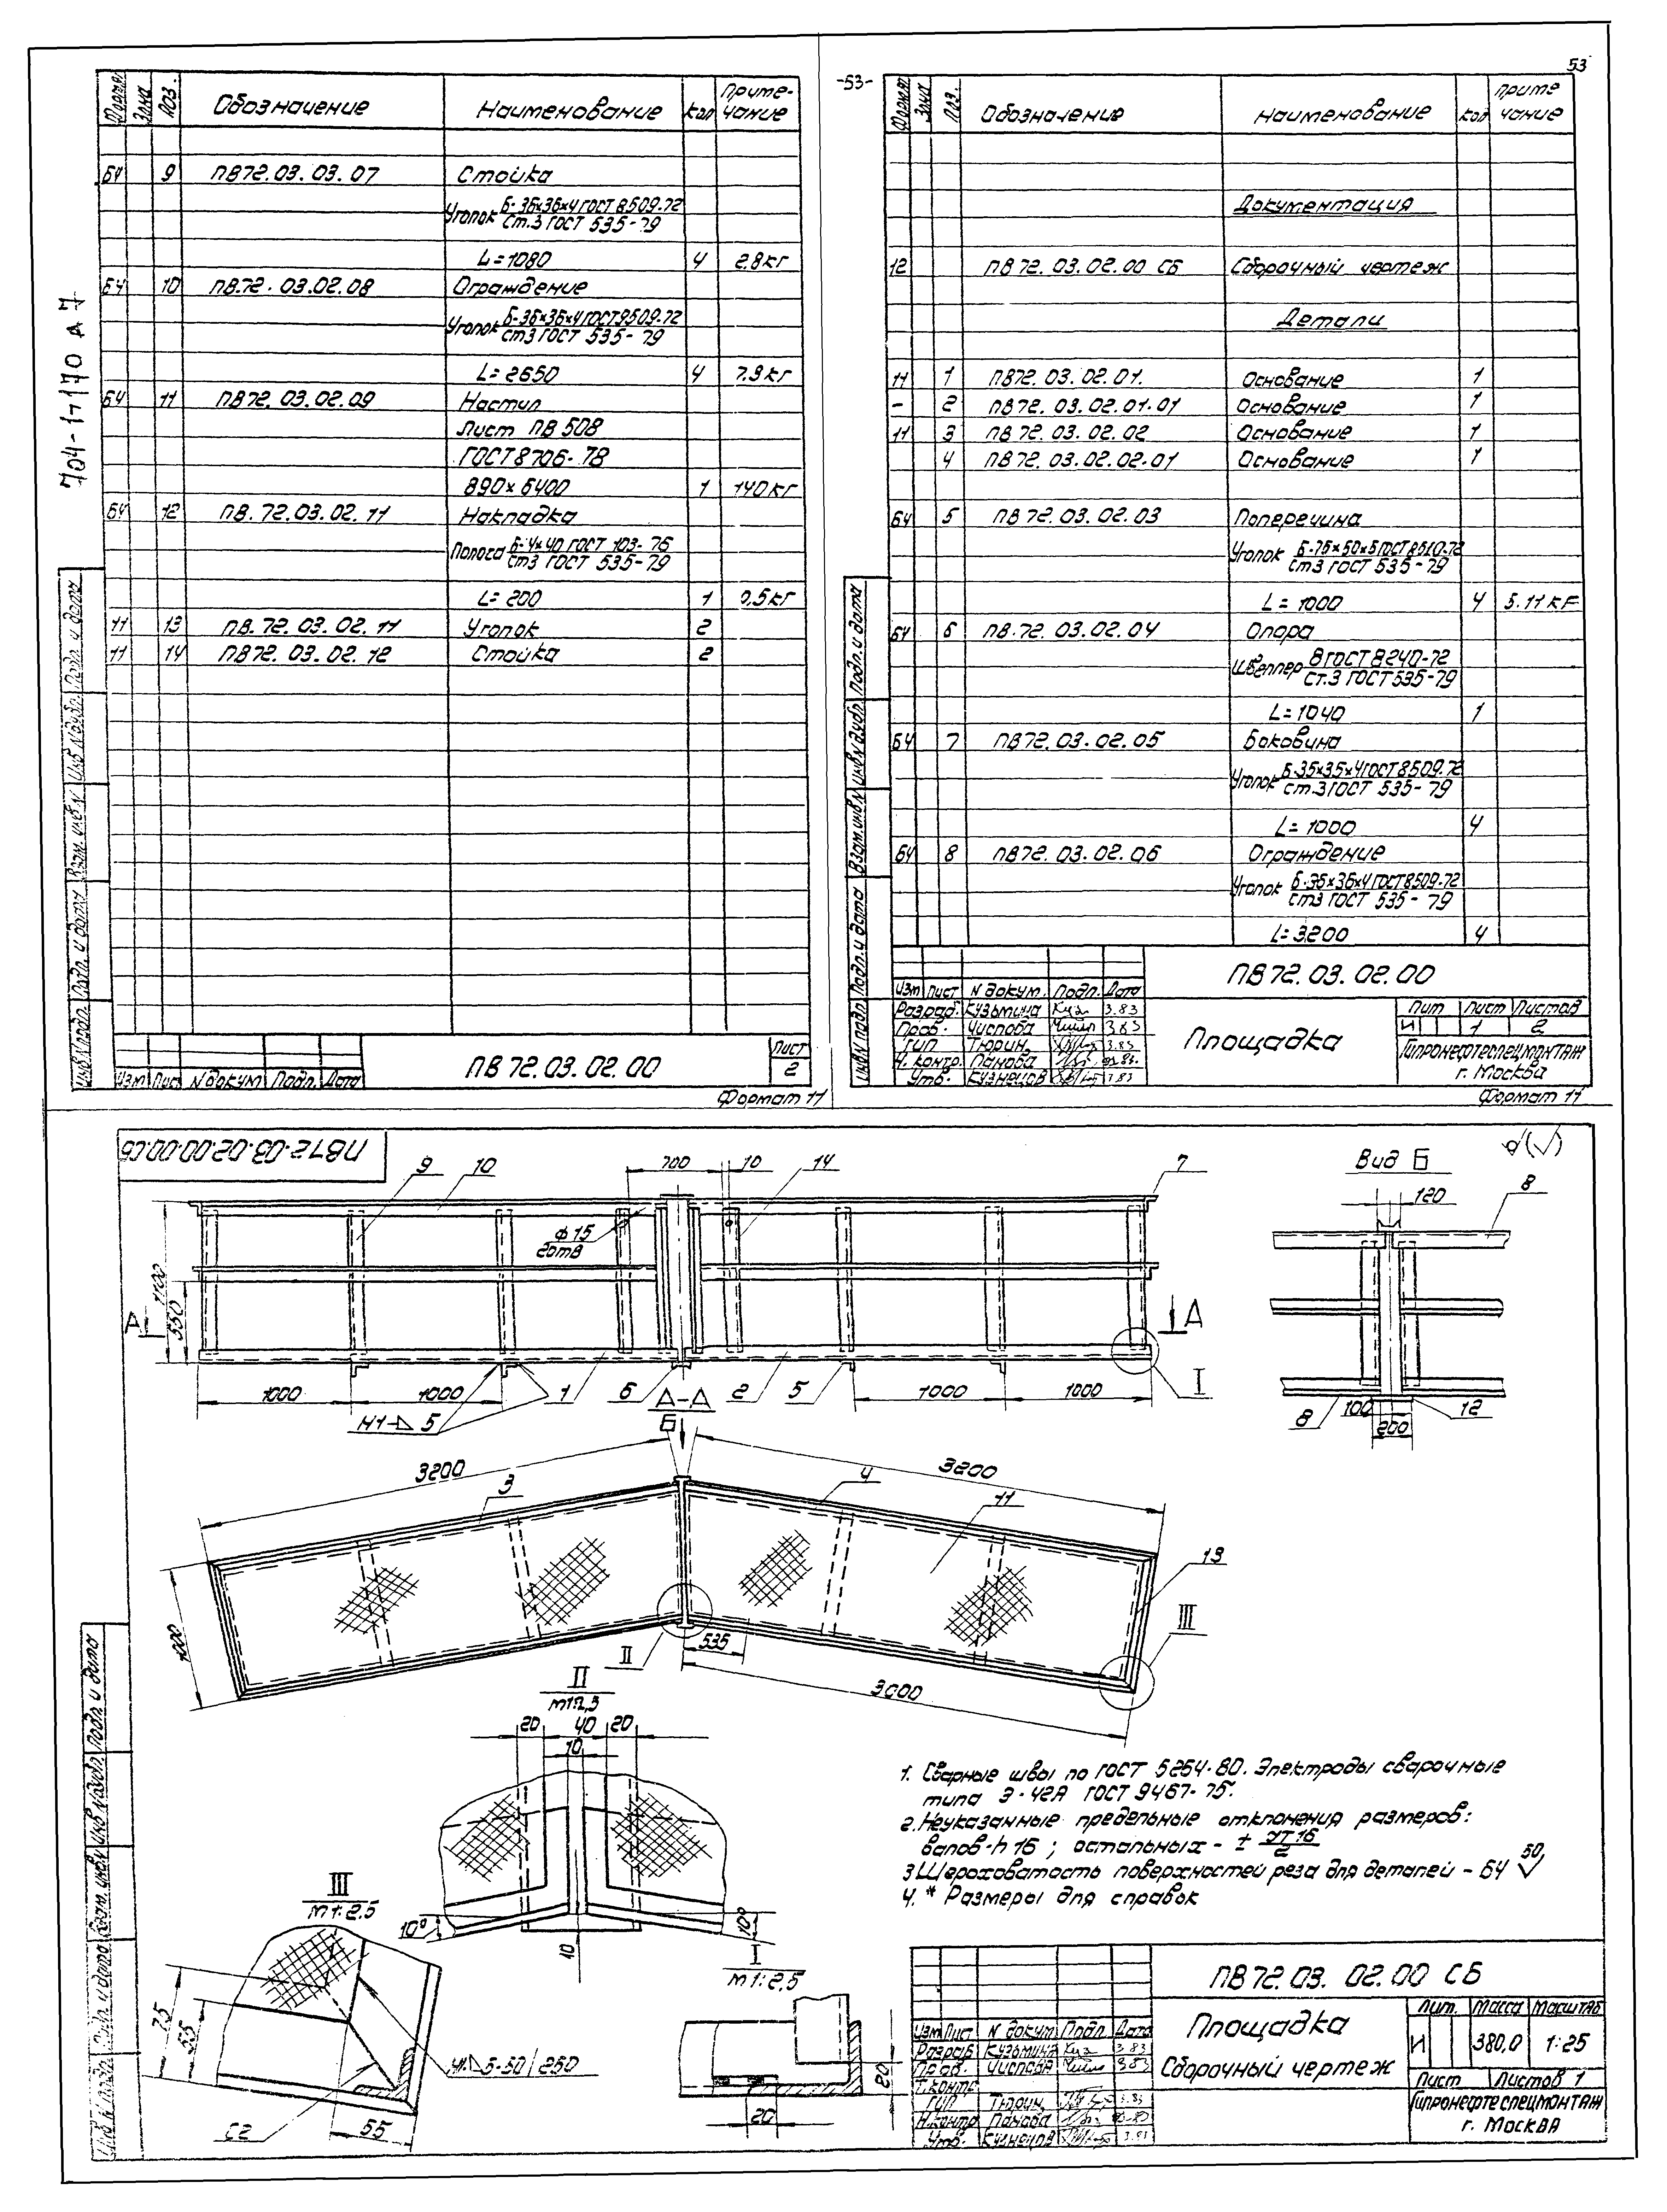 53
-53-
704-1-170 А7
Формат Зона Поз. Обозначение Наименование Кол Примечание
БЧ 9 ПВ72.03.03.07 Стойка
Уголок Б-36х36х4 ГОСТ 8509-72
Ст.3 ГОСТ 535-79
L=1080 4 2.8кг
БЧ 10 ПВ.72.03.02.08 Ограждение
Уголок Б-36х36х4 ГОСТ 8509-72
Ст3 ГОСТ 535-79
L=2650 4 7.9кг
БЧ 11 ПВ72.03.02.09 Настил
Лист ПВ 508
ГОСТ 8706-78
890х6400 1 140кг
БЧ 12 ПВ.72.03.02.11 Накладка
Полоса Б-4х40 ГОСТ 103-76
Ст3 ГОСТ 535-79
L=200 1 0,5кг
11 13 ПВ.72.03.02.11 Уголок 2
11 14 ПВ72.03.02.12 Стойка 2
Изм Лист N докум Подп. Дата
ПВ72.03.02.00
Лист
2
Формат 11
Инв N подл. Подп. и дата Взам. инв N Инв N дубл. Подп. и дата
Формат Зона Поз. Обозначение Наименование Кол Примечание
Документация
12 ПВ72.03.02.00 СБ Сборочный чертеж
Детали
11 1 ПВ72.03.02.01. Основание 1
- 2 ПВ72.03.02.01-01 Основание 1
11 3 ПВ72.03.02.02 Основание 1
4 ПВ72.03.02.02-01 Основание 1
БЧ 5 ПВ72.03.02.03 Поперечина
Уголок Б-75х50х5 ГОСТ 8510-72
Ст3 ГОСТ 535-79
L=1000 4 5.11кг
БЧ 6 ПВ.72.03.02.04 Опора
Швеллер 8 ГОСТ 8240-72
Ст.3 ГОСТ 535-79
L=1040 1
БЧ 7 ПВ72.03.02.05 Боковина
Уголок Б-35х35х4 ГОСТ 8509-72
Ст.3 ГОСТ 535-79
L=1000 4
БЧ 8 ПВ72.03.02.06 Ограждение
Уголок Б-36х36х4 ГОСТ 8509-72
Ст3 ГОСТ 535-79
L=3200 4
ПВ72.03.02.00
Изм Лист N докум. Подп. Дата
Разраб. Кузьмина 3.83
Пров. Числова 3.83
ГИП Тюрин. 3.83
Н. контр. Панова
Утв. Кузнецов 3.83
Площадка
Лит Лист Листов
И 1 2
Гипронефтеспецмонтаж
г. Москва
Формат 11
Инв N подл Подп. и дата Взам. инв N Инв N дубл Подп. и дата
ПВ72.03.02.00.00.СБ
9 10 700 10 14 7
ф15
2отв
1100
550
А А
1000 1000 1 6 2 5 1000 1000 I
Н1-⊿ 5
Вид Б
120 8
8 100 200 12
А-А
Б
3200 3200
3 4 11 13
1000
II III
535
3000
II
М1:2,5
20 40 20
10
10° 10°
10
III
М1:2,5
75
55
С2 55
⊿5-50/250
I
М1:2,5
20
20
1. Сварные швы по ГОСТ 5264-80. Электроды сварочные
типа Э-42А ГОСТ 9467-75.
2. Неуказанные предельные отклонения размеров:
валов-h16; остальных - ± IT16/2
3 Шероховатость поверхностей реза для деталей - БЧ 50
4. * Размеры для справок
ПВ72.03.02.00 СБ
Изм Лист N докум Подп. Дата
Разраб Кузьмина 3.83
Пров. Числова 3.83
Т.контр
ГИП Тюрин. 3.83
Н.контр Панова
Утв. Кузнецов 3.83
Площадка
Сборочный чертеж
Лит. Масса Масштаб
И 380,0 1:25
Лист Листов 1
Гипронефтеспецмонтаж
г. Москва
Инв N подл Подп. и дата Взам. инв N Инв N дубл. Подп. и дата